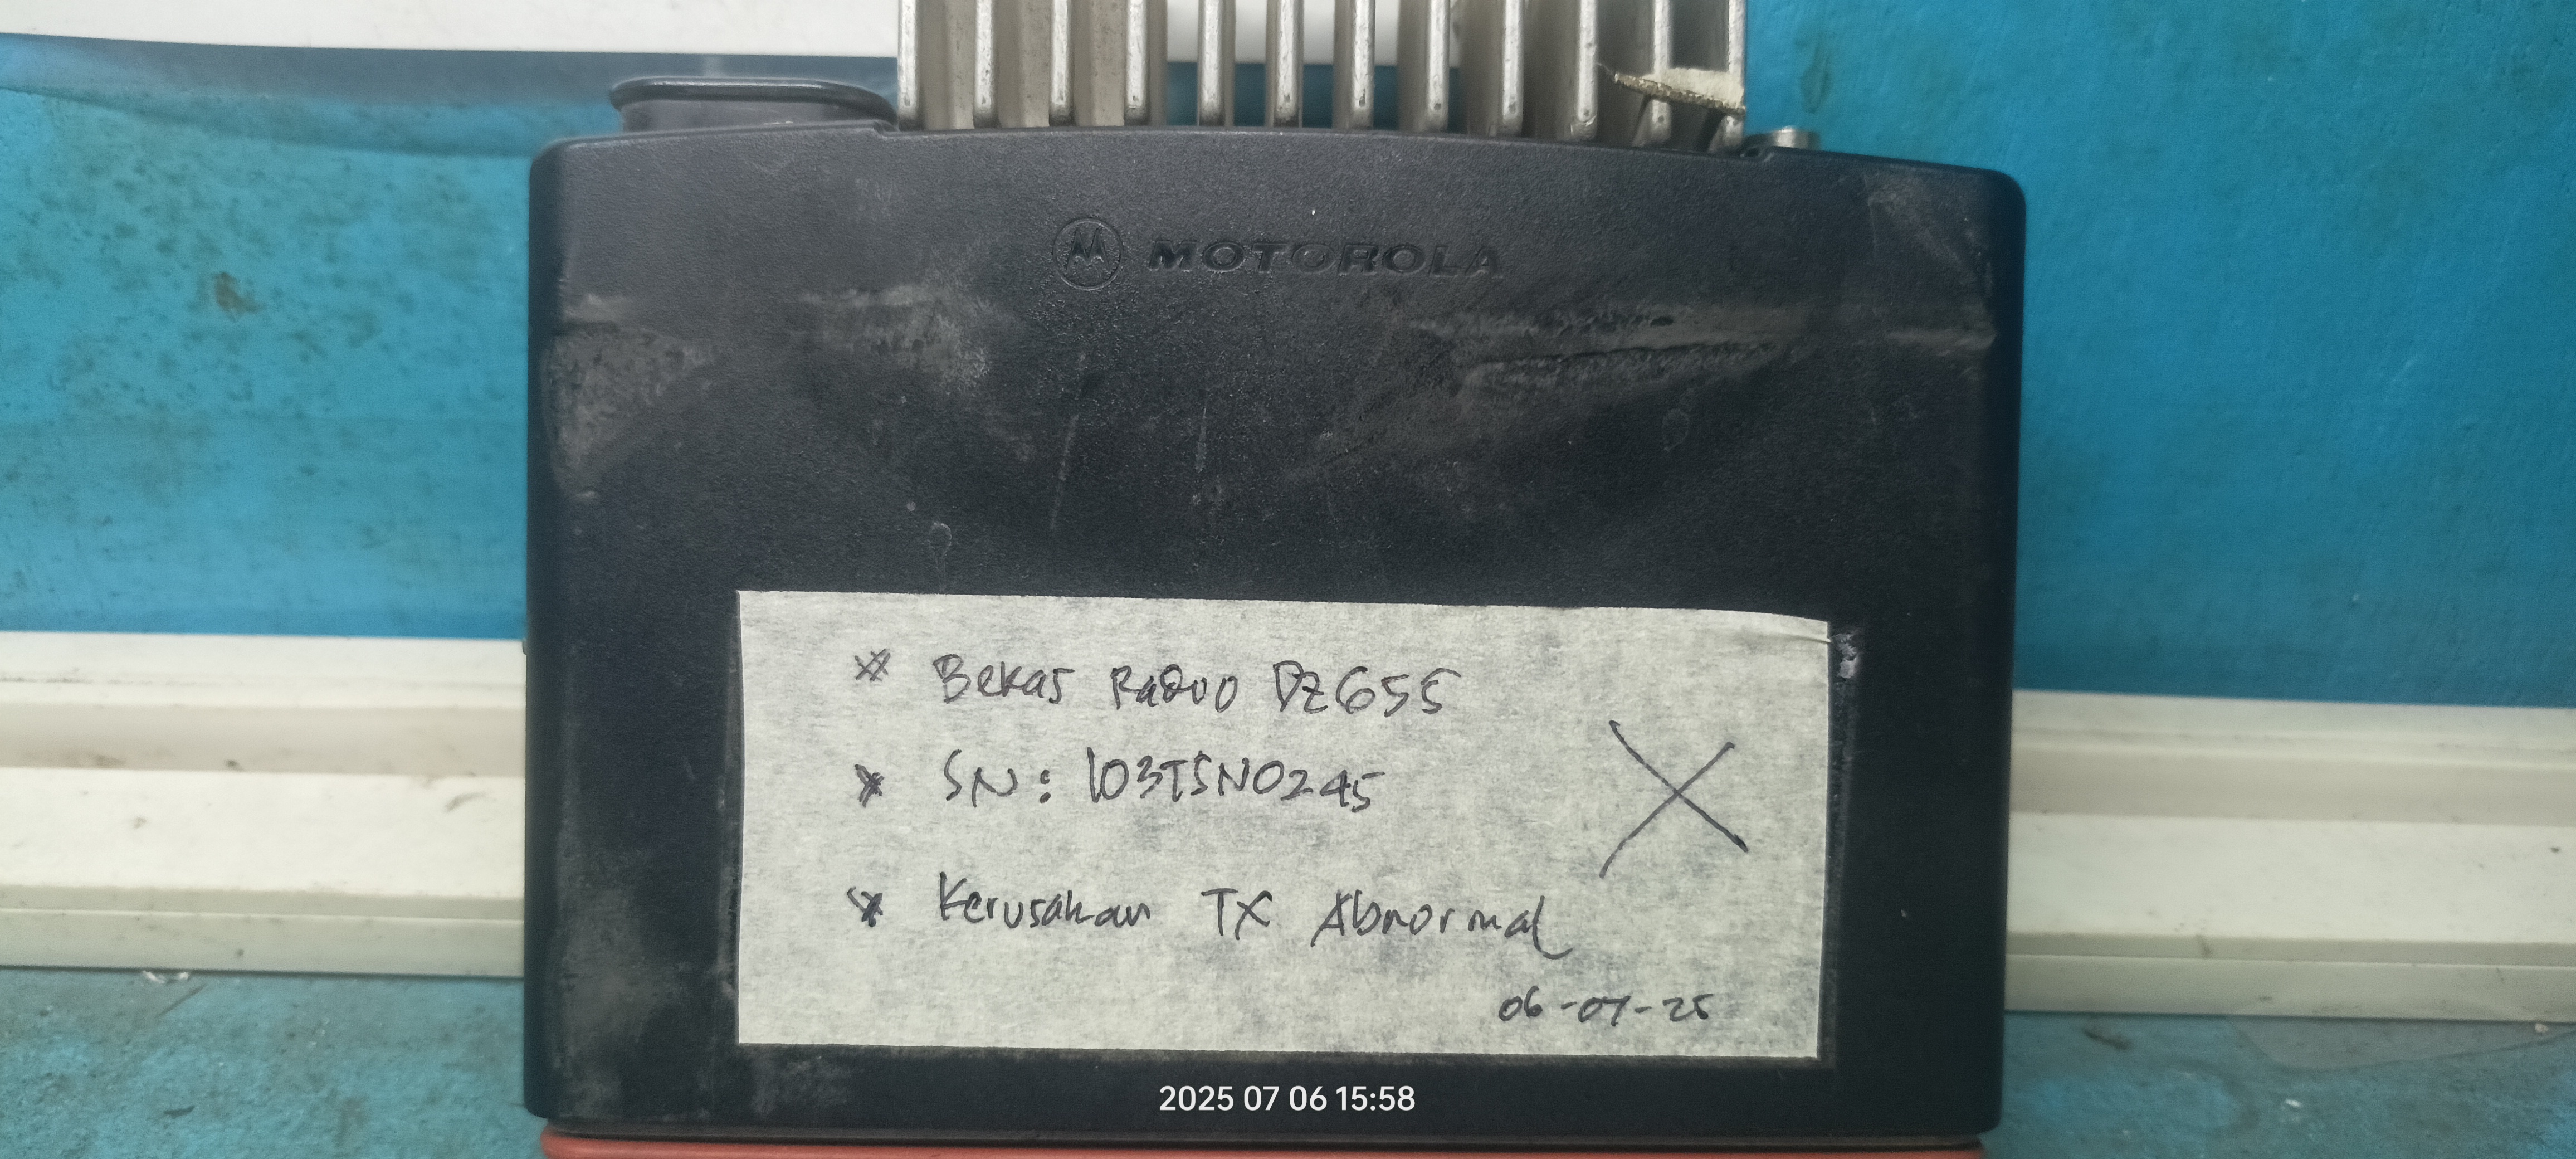 MOTOROLA
* Bekas Radio DZ655
* SN: 103TSN0245
* Kerusakan TX Abnormal
06-07-25
2025 07 06 15:58